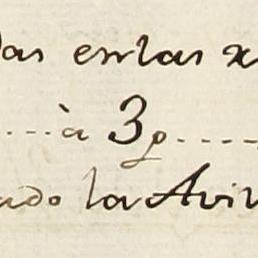 das enlas x
....à 3p.....
ado los Aviv